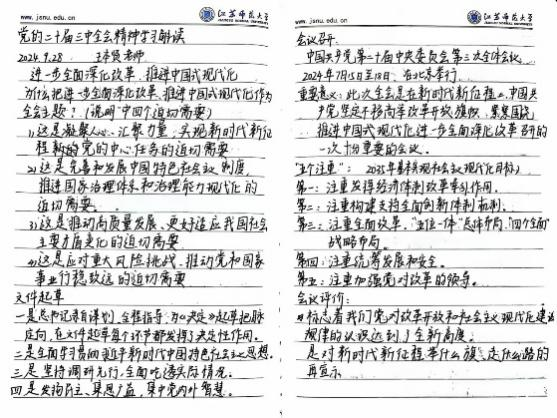 www.jsnu.edu.cn
江苏师范大学
党的二十届三中全会精神学习解读
2024.9.28 老师
进一步全面深化改革、推进中国式现代化
为什么把进一步全面深化改革、推进中国式现代化作为
全会主题?(说明"四个迫切需要)
1)这是凝聚人心、汇聚力量、实现新时代新征
程新的党的中心任务的迫切需要
2)这是完善和发展中国特色社会义制度、
推进国家治理体系和治理能力现代化的
迫切需要
3)这是推动高质量发展、更好适应我国社会
主要矛盾变化的迫切需要
4)这是应对重大风险挑战、推动党和国家
事业行稳致远的迫切需要
文件起草
一是总书记亲自谋划、全程指导,为《决定》起草把脉
定向,在文件起草每个环节都发挥了决定性作用。
二是全面学习贯彻习近平新时代中国特色社会主义思想。
三是坚持调研先行,全面吃透实际情况。
四是发扬民主、集思广益,集中党内外智慧。
www.jsnu.edu.cn
江苏师范大学
会议召开:
中国共产党第二十届中央委员会第三次全体会议,
2024年7月15日至18日,在北京举行
重要意义:此次全会是在新时代新征程上,中国共
产党坚定不移高举改革开放旗帜,紧紧围绕
推进中国式现代化进一步全面深化改革召开的
一次十分重要的会议。
"五个注重":(2035年基本实现社会主义现代化目标)
第一:注重发挥经济体制改革牵引作用。
第二:注重构建支持全面创新体制机制。
第三:注重全面改革,"五位一体"总体布局,"四个全面"
战略布局。
第四:注重统筹发展和安全。
第五:注重加强党对改革的领导。
会议评价:
标志着我们党对改革开放和社会主义现代化建设
规律的认识达到了全新高度。
是对新时代新征程举什么旗、走什么路的
再宣示